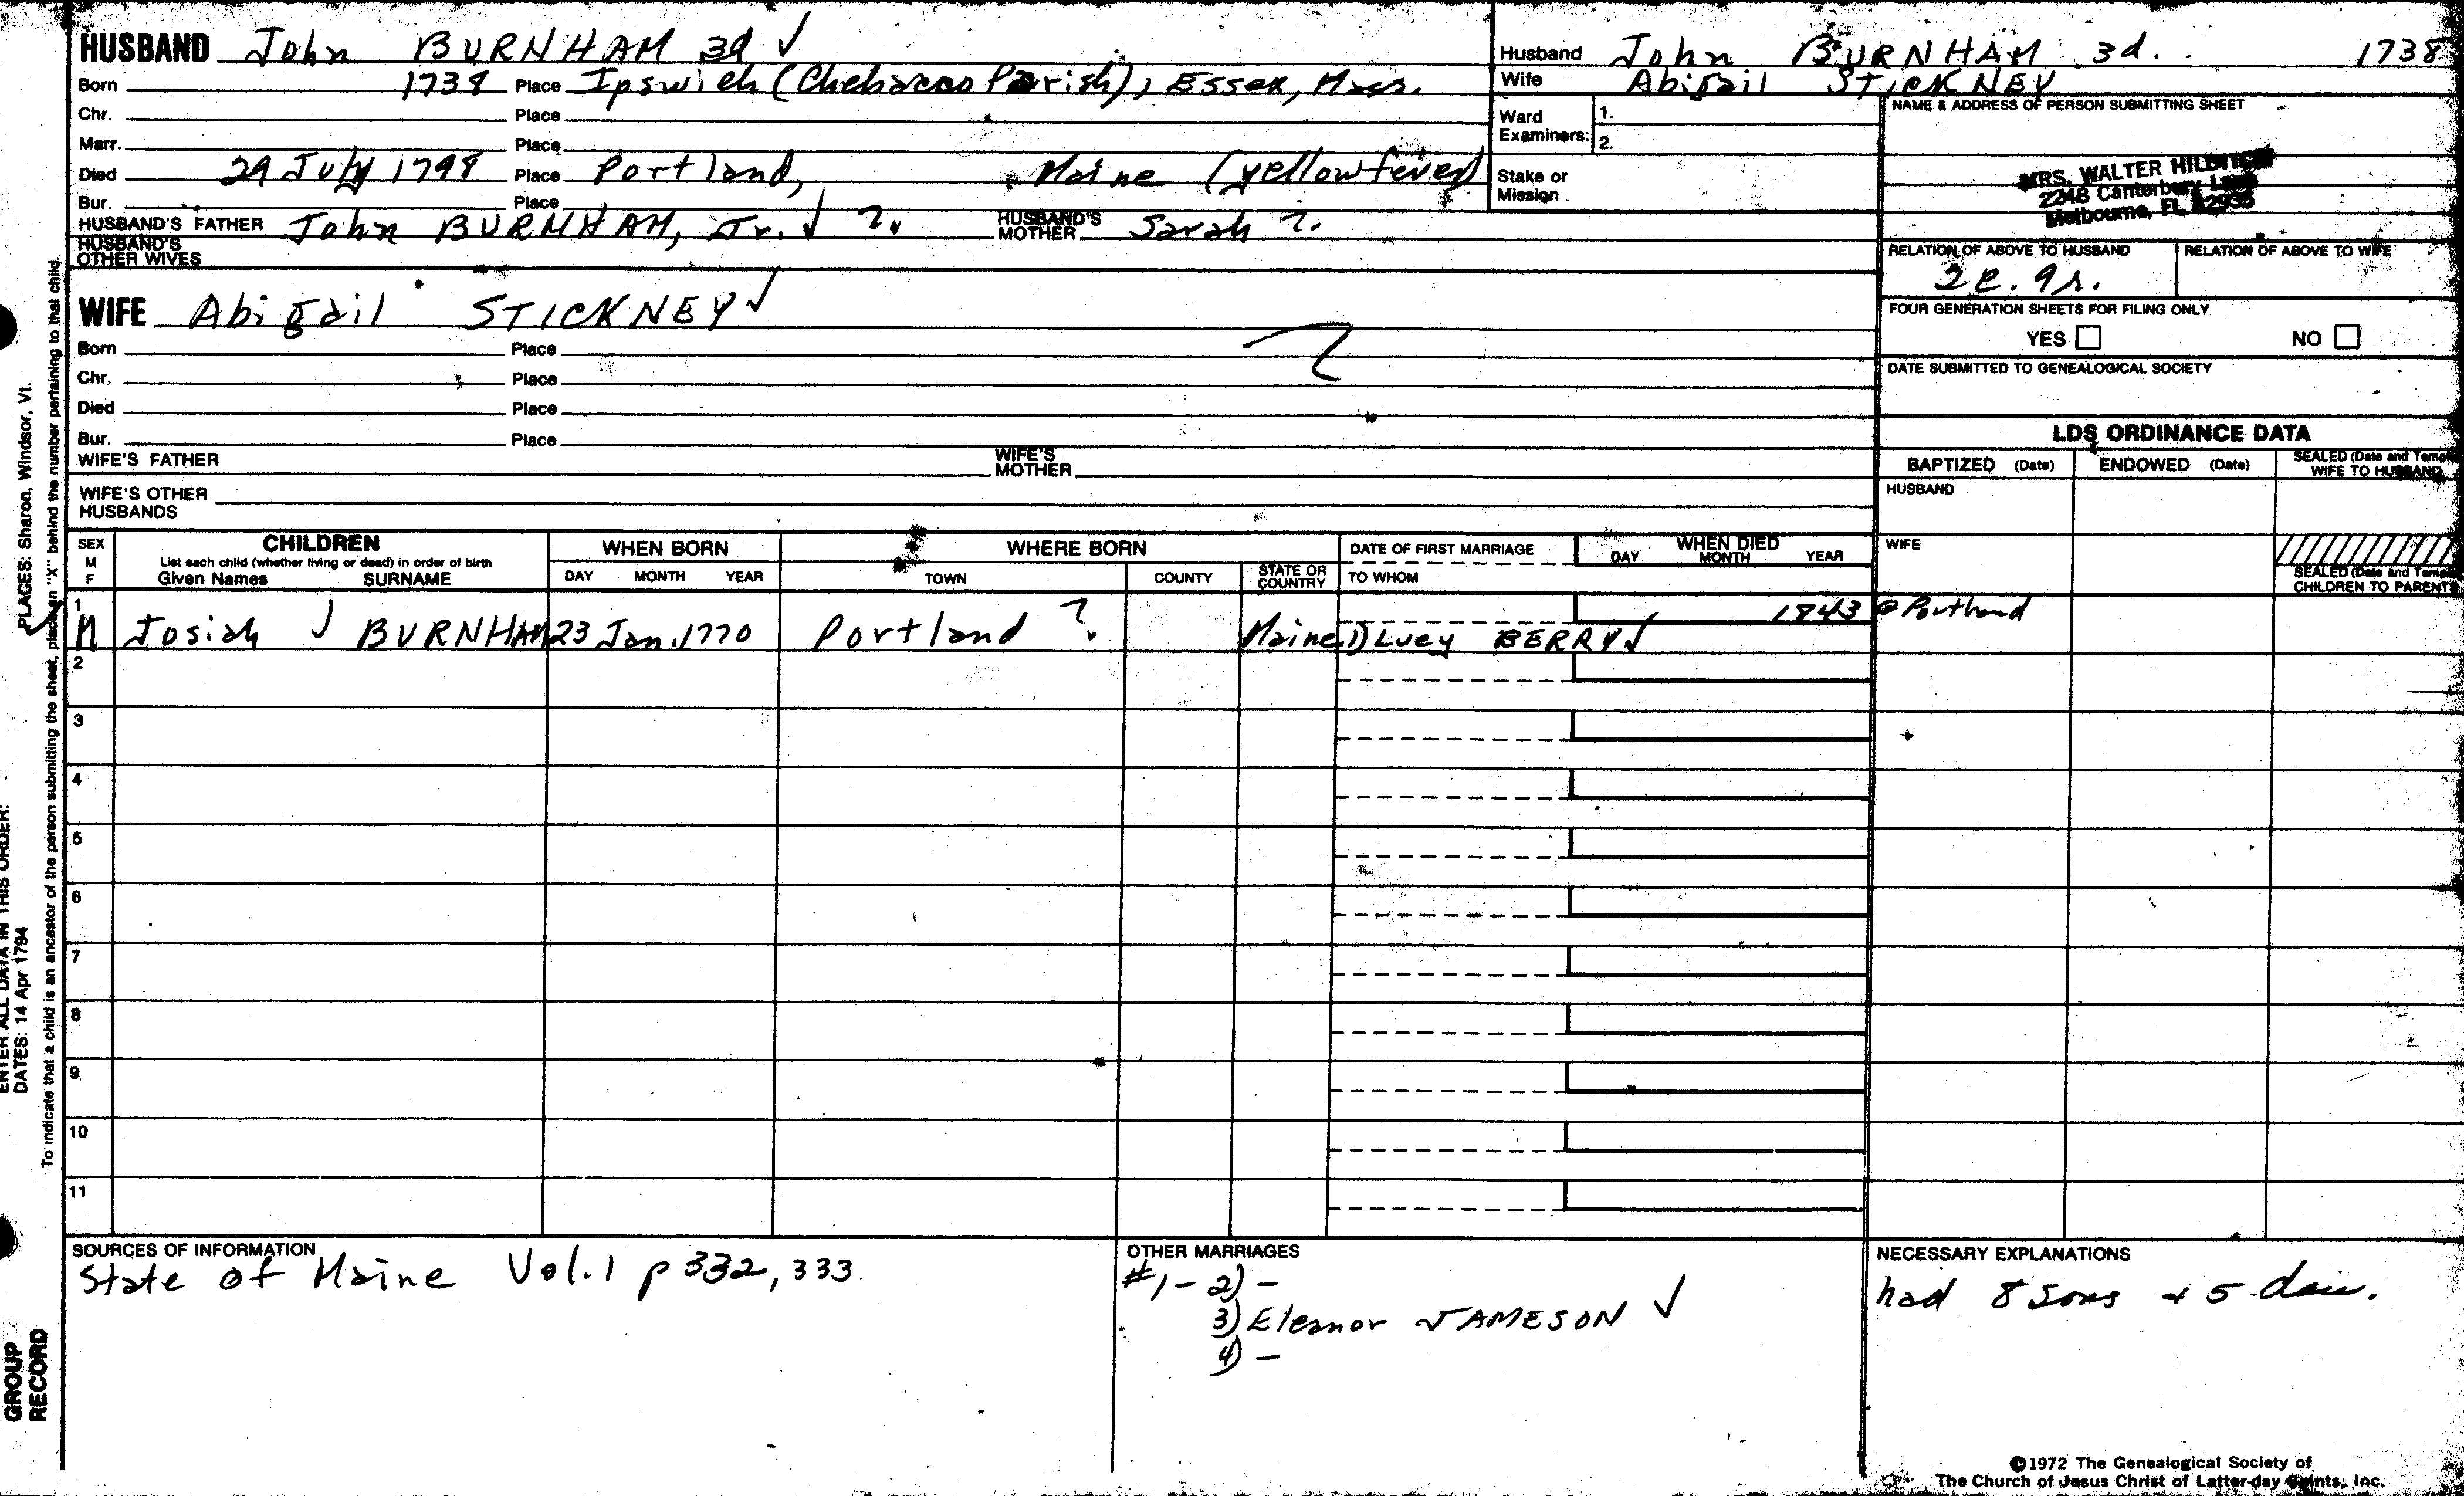 HUSBAND John BURNHAM 3d ✓
Born 1738 Place Ipswich (Chebacco Parish), Essex, Mass.
Chr. Place
Marr. Place
Died 29 July 1798 Place Portland, Maine (yellow fever)
Bur. Place
HUSBAND'S FATHER John BURNHAM, Jr. ✓ ?. HUSBAND'S MOTHER Sarah ?.
HUSBAND'S OTHER WIVES
Husband John BURNHAM 3d. 1738
Wife Abigail STICKNEY
Ward Examiners: 1.
2.
Stake or Mission
NAME & ADDRESS OF PERSON SUBMITTING SHEET
MRS. WALTER
2248 Canterbury
Melbourne, FL
RELATION OF ABOVE TO HUSBAND RELATION OF ABOVE TO WIFE
2c. 9r.
FOUR GENERATION SHEETS FOR FILING ONLY
YES NO
DATE SUBMITTED TO GENEALOGICAL SOCIETY
WIFE Abigail STICKNEY ✓
Born Place ?
Chr. Place
Died Place
Bur. Place
WIFE'S FATHER WIFE'S MOTHER
WIFE'S OTHER HUSBANDS
LDS ORDINANCE DATA
BAPTIZED (Date) ENDOWED (Date) SEALED (Date and Temple) WIFE TO HUSBAND
HUSBAND
WIFE
SEALED (Date and Temple) CHILDREN TO PARENTS
SEX M F
CHILDREN
List each child (whether living or dead) in order of birth
Given Names SURNAME
WHEN BORN
DAY MONTH YEAR
WHERE BORN
TOWN COUNTY STATE OR COUNTRY
DATE OF FIRST MARRIAGE
TO WHOM
WHEN DIED
DAY MONTH YEAR
1 1843 @ Portland
M Josiah ✓ BURNHAM 23 Jan. 1770 Portland ?. Maine 1) Lucy BERRY ✓
2
3
4
5
6
7
8
9
10
11
SOURCES OF INFORMATION
State of Maine Vol. 1 p 332, 333
OTHER MARRIAGES
#1 - 2) -
3) Eleanor JAMESON ✓
4) -
NECESSARY EXPLANATIONS
had 8 sons + 5 dau.
©1972 The Genealogical Society of
The Church of Jesus Christ of Latter-day Saints, Inc.
PLACES: Sharon, Windsor, Vt.
ENTER ALL DATA IN THIS ORDER:
DATES: 14 Apr 1794
To indicate that a child is an ancestor of the person submitting the sheet, place an "X" behind the number pertaining to that child.
GROUP
RECORD